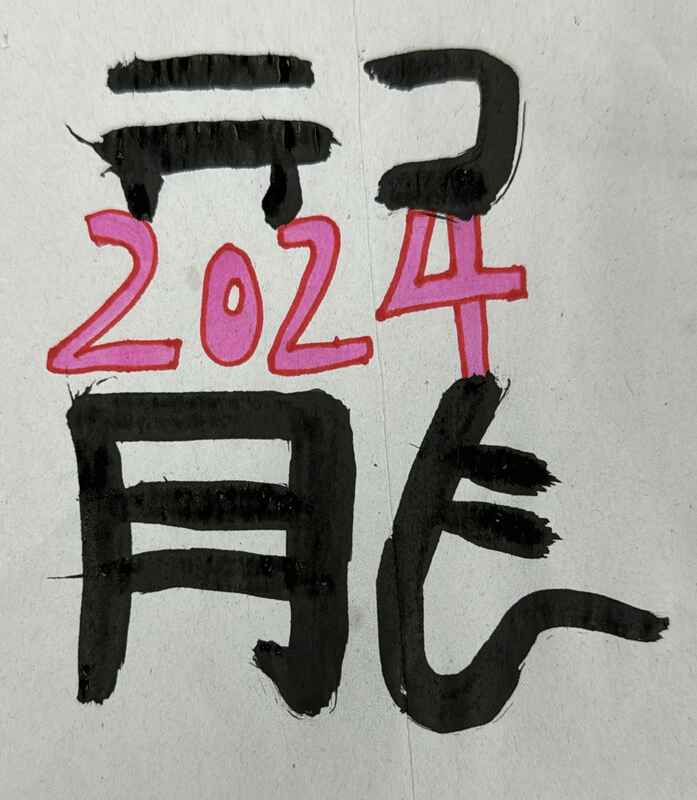 龍
2024